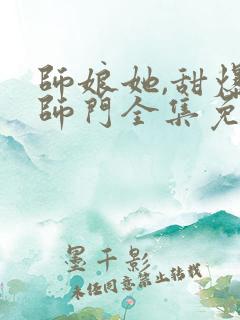 師娘她,甜爆
師門全集免
墨千影
未經同意禁止轉載